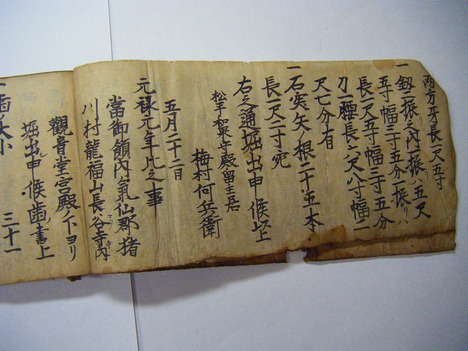 両方牙長一尺五寸
一釼二振ノ内一振ハ五尺
五寸幅三寸五分一振リハ
長一尺五寸幅三寸五分
刀一腰長六尺八寸幅一
尺七分有
一石突矢ノ根二十五本
長一尺二寸宛
右之通堀出申候以上
松平和泉守殿留主居
梅村何兵衛
五月二十二日
元禄元年比之事
當御領内氣仙郡猪
川村龍福山長谷寺内
觀音堂宮殿ノ下ヨリ
堀出申候歯書上
一歯大小 三十一